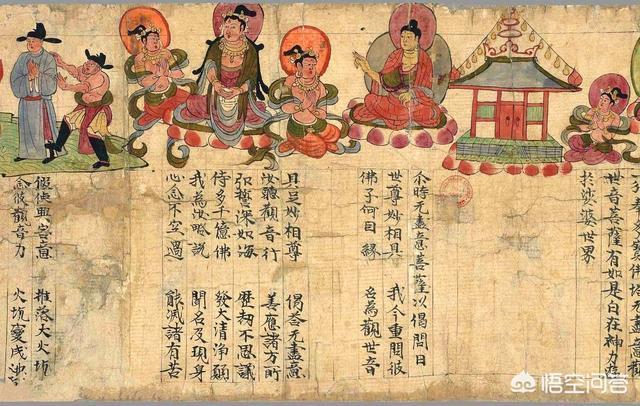 多寶佛塔无盡意
世音菩薩有如是自在神力遊
於娑婆世界
尒時无盡意菩薩以偈問曰
世尊妙相具 我今重問彼
佛子何因緣 名為觀世音
具足妙相尊 偈荅无盡意
汝聽觀音行 善應諸方所
弘誓深如海 歷劫不思議
侍多千億佛 發大清淨願
我為汝略說 聞名及現身
心念不空過 能滅諸有苦
假使興害意 推落大火坑
念彼觀音力 火坑變成池
悟空问答